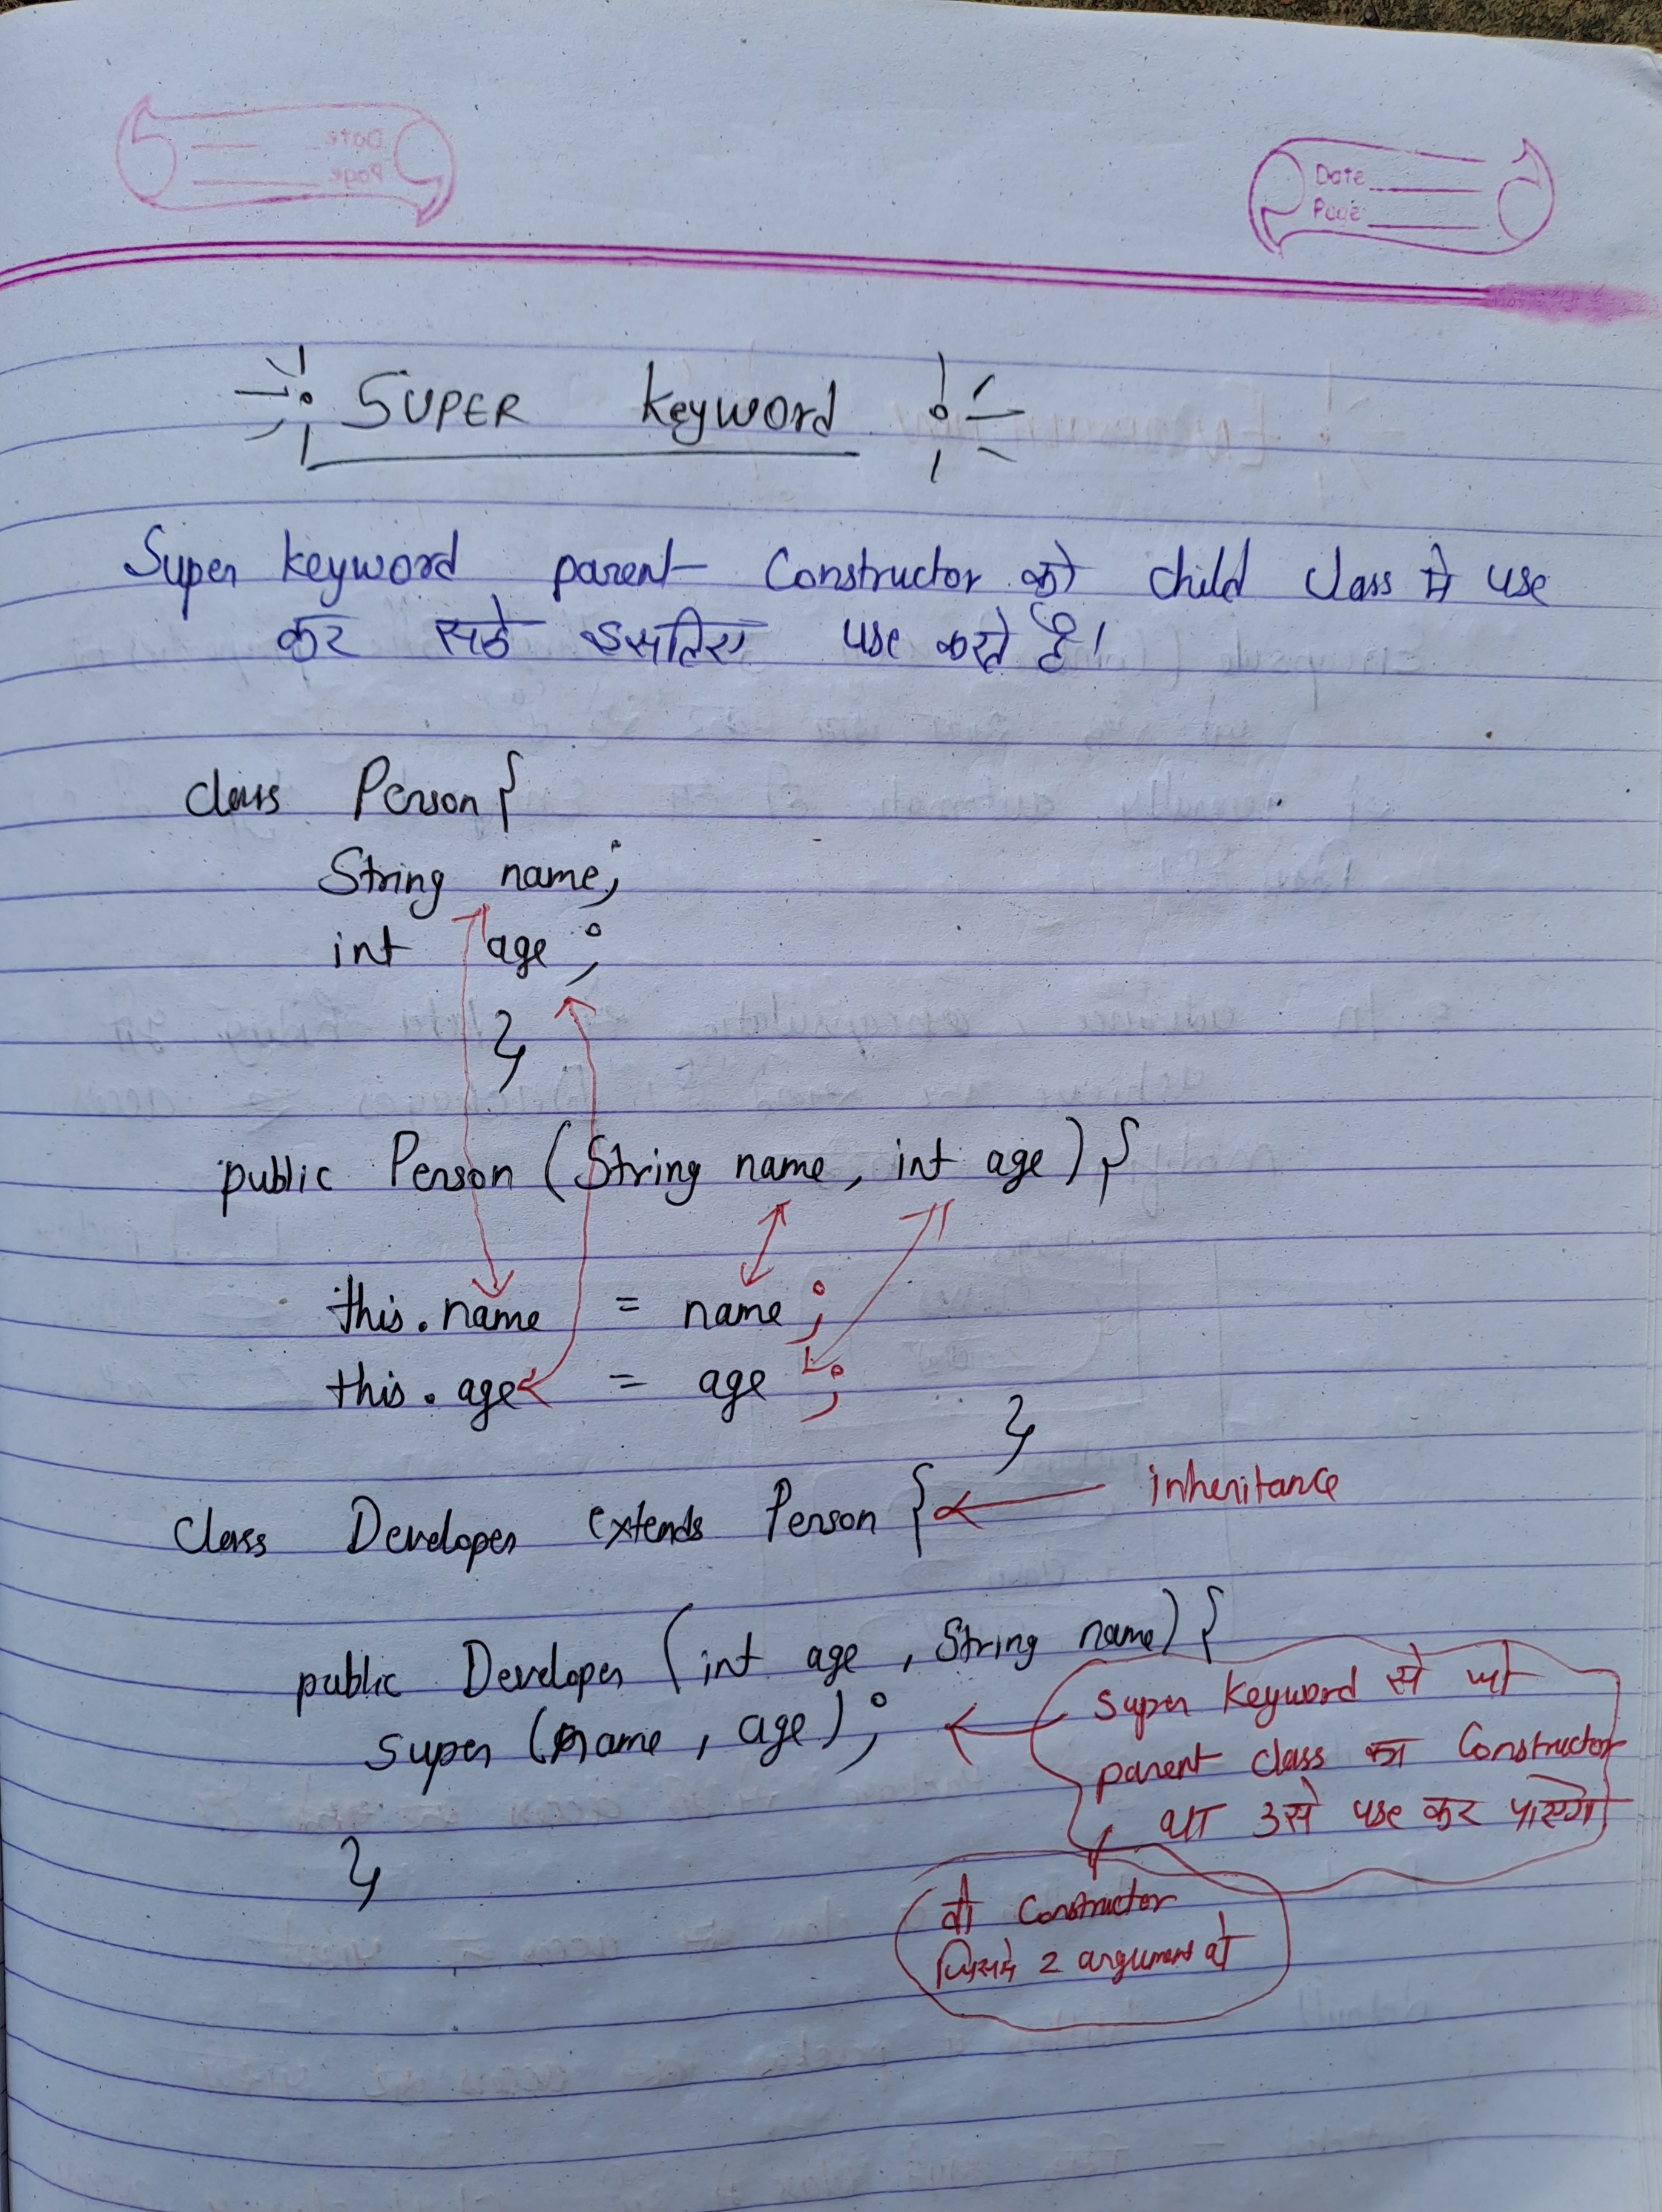 Date
Page
SUPER keyword
Super keyword parent Constructor को child class मे use
कर सके इसलिए use करते है।
class Person{
String name;
int age;
}
public Person (String name, int age) {
this.name = name;
this.age = age;
}
class Developer extends Person { inheritance
public Developer (int age, String name) {
super (name, age);
super keyword से जो
parent class का Constructor
था उसे use कर पाएंगे
}
वो Constructor
जिसमे 2 argument थे